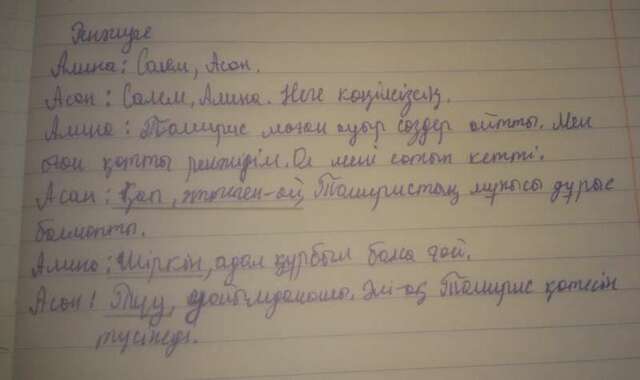 Ренжуге
Амина: Сәлем, Асан.
Асан: Сәлем, Амина. Неге көңілсізсің.
Амина: Томирис маған ауыр сөздер айтты. Мен
оған қатты ренжідім. Ол мені сатып кетті.
Асан: Қап, әттеген-ай Томиристың мұнысы дұрыс
болмапты.
Амина: Шіркін, адал құрбым болса ғой.
Асан: Туу, уайымдамашы. Әлі-ақ Томирис қатесін
түсінеді.